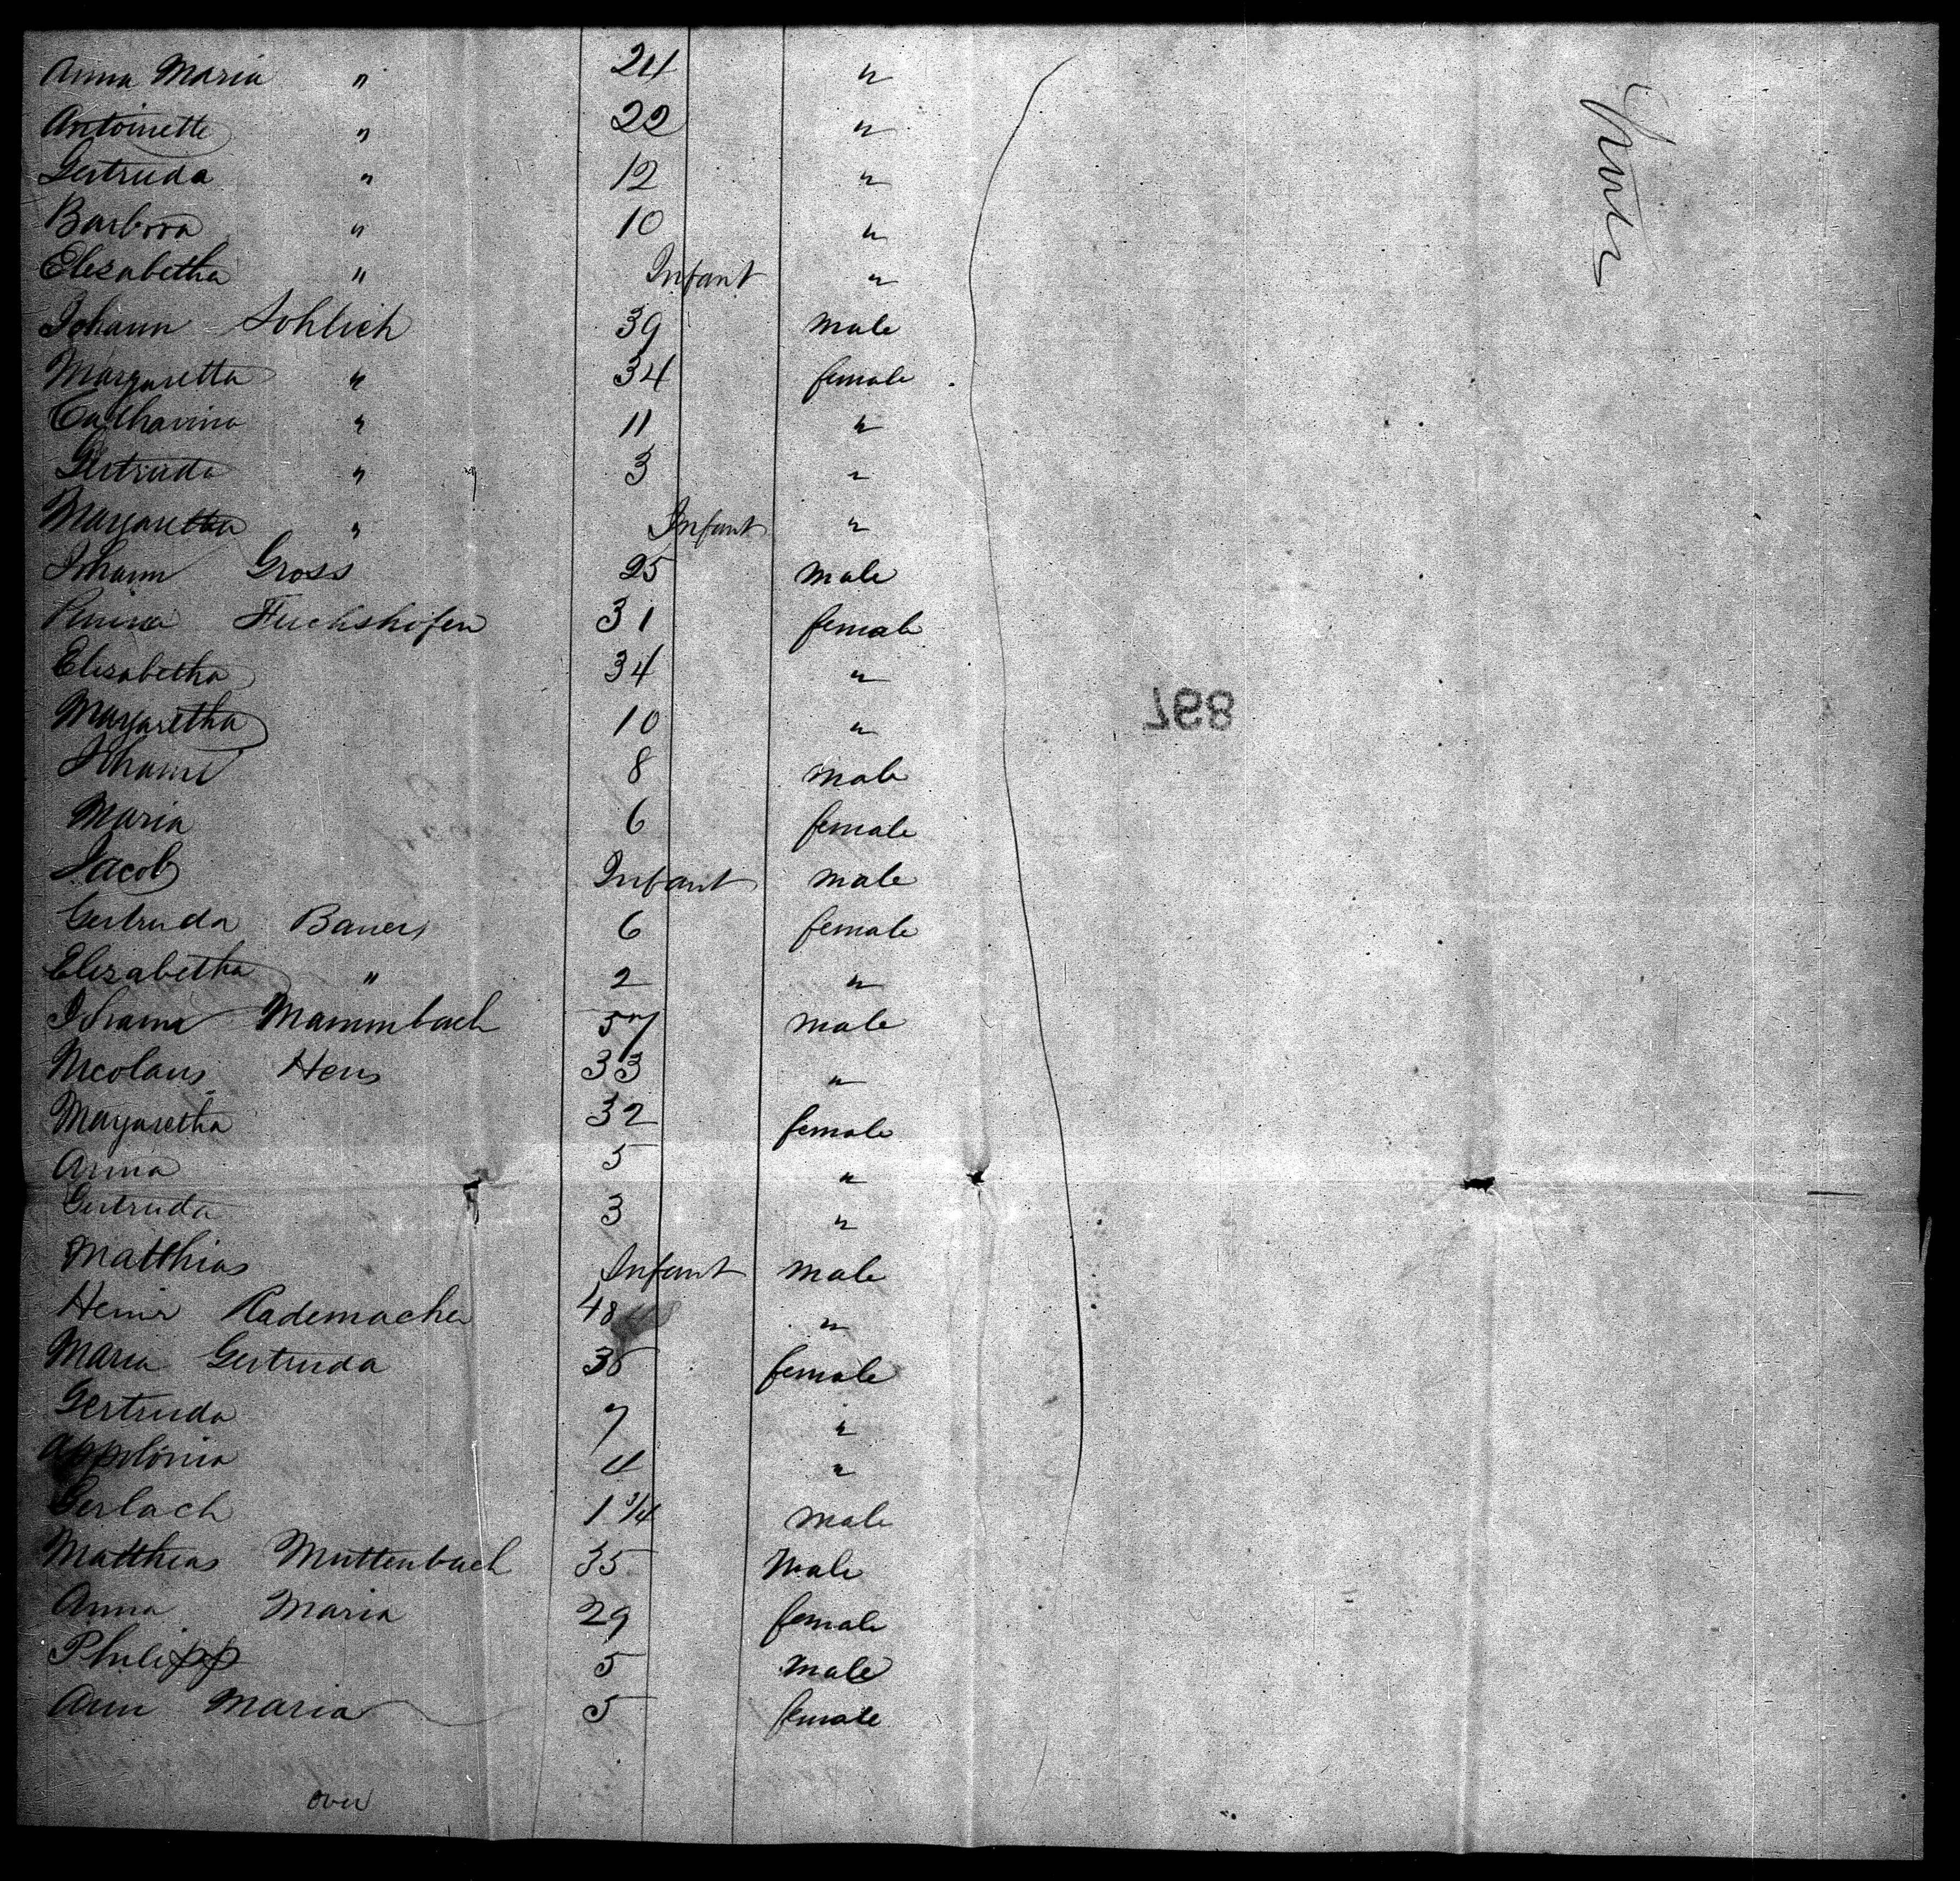 Anna Maria " 24 "
Antoinette " 22 "
Gertruda " 12 "
Barbora " 10 "
Elisabetha " Infant "
Johann Sohlich 39 male
Margaretta " 34 female
Catharina " 11 "
Gertruda " 3 "
Margaretha " Infant "
Johann Gross 25 male
Fuchshofen 31 female
Elisabetha 34 "
Margaretha 10 "
Johann 8 male
Maria 6 female
Jacob Infant male
Gertruda Bauer 6 female
Elisabetha " 2 "
Johann Mammbach 57 male
Nicolaus Hens 33 "
Margaretha 32 female
Anna 5 "
Gertruda 3 "
Matthias Infant male
Henir Rademacher 48 "
Maria Gertruda 36 female
Gertruda 7 "
Appolonia 4 "
Gerlach 1 3/4 male
Matthias Muttenbach 35 Male
Anna Maria 29 female
Philipp 5 male
Ann Maria 5 female
over
897